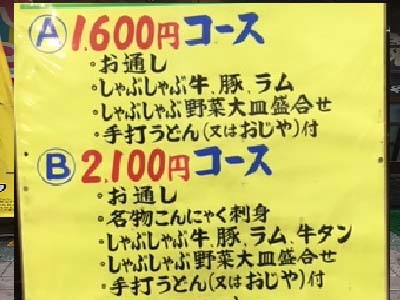 Ⓐ1.600円コース
・お通し
・しゃぶしゃぶ牛、豚、ラム
・しゃぶしゃぶ野菜大皿盛合せ
・手打うどん(又はおじや)付
Ⓑ2.100円コース
・お通し
・名物こんにゃく刺身
・しゃぶしゃぶ牛、豚、ラム、牛タン
・しゃぶしゃぶ野菜大皿盛合せ
・手打うどん(又はおじや)付